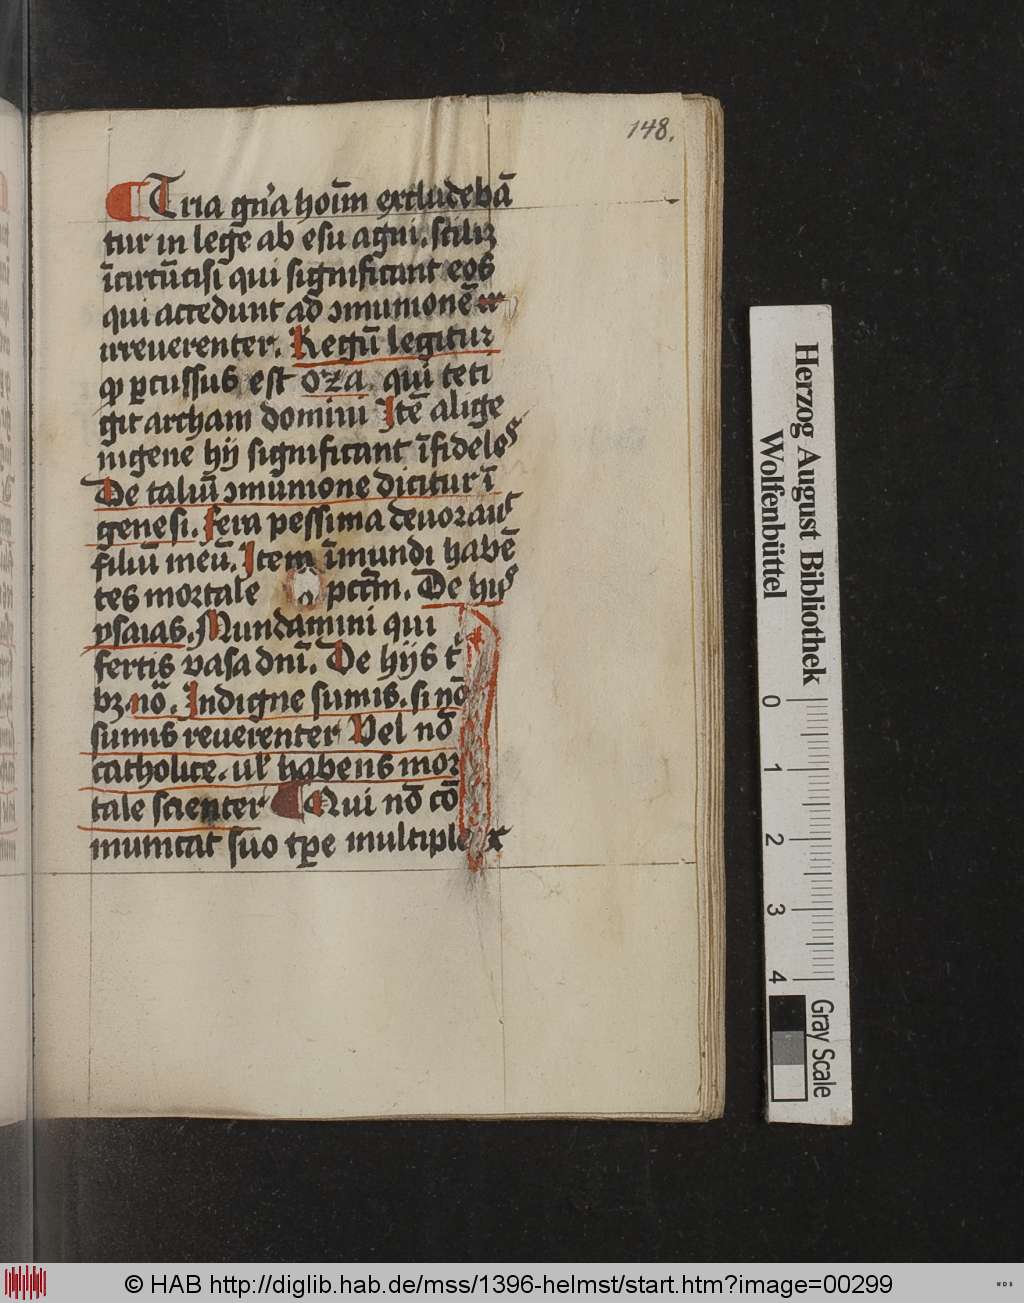 148.
¶ Tria gn̄a hoīm excludebā
tur in lege ab esu agni. scilicꝫ
īcircūcisi qui significant eos
qui accedunt ad ꝯmunionē
irreuerenter. Regū legitur
ꝙ ꝑcussus est oza. qui teti
git archam domini Itē alige
nigene hij significant īfideles
De taliū ꝯmunione dicitur ī
genesi. fera pessima deuorauit
filiū meū. Item īmundi habē
tes mortale pctm̄. De hijs
ysaias. Mundamini qui
fertis vasa dnī. De hijs t
bꝫ. nō. Indigne sumis. si nō
sumis reuerenter Vel nō
catholice. ul̄ habens mor
tale scienter ¶ Qui nō cō
municat suo tꝑe multiplex
Herzog August Bibliothek
Wolfenbüttel
0 1 2 3 4
Gray Scale
© HAB http://diglib.hab.de/mss/1396-helmst/start.htm?image=00299